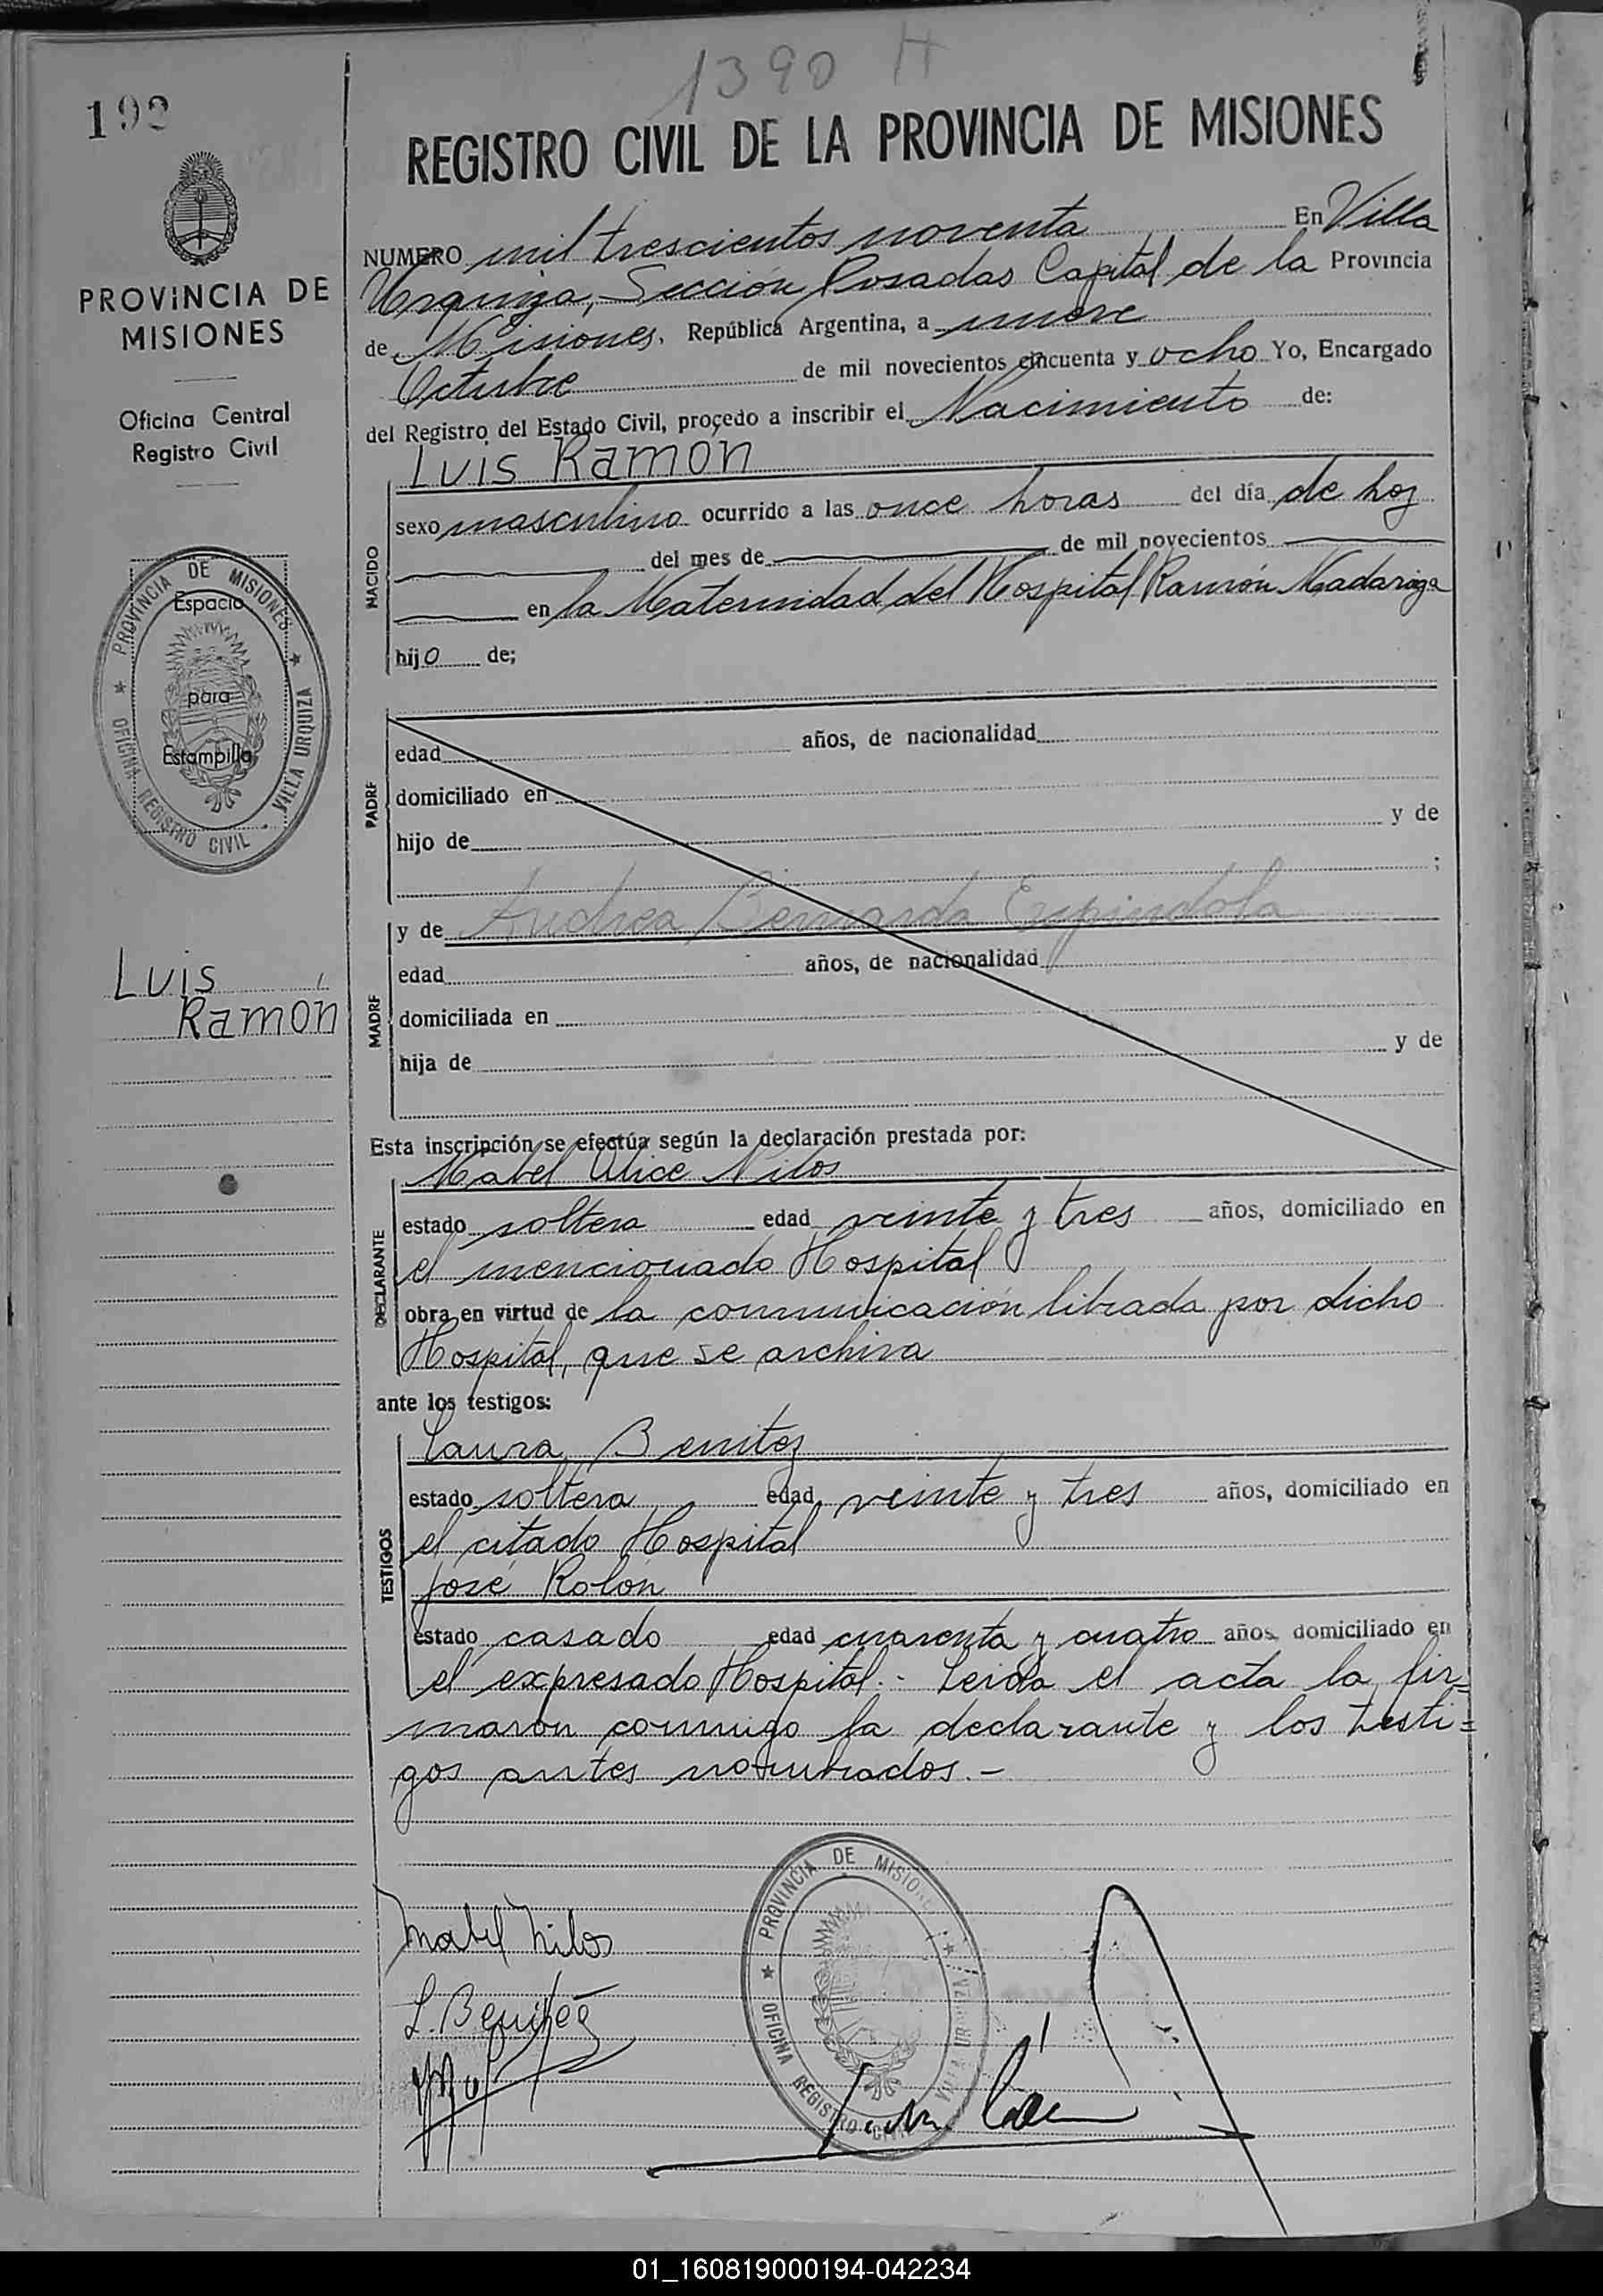 1390 H
192
REGISTRO CIVIL DE LA PROVINCIA DE MISIONES
PROVINCIA DE
MISIONES
Oficina Central
Registro Civil
PROVINCIA DE MISIONES
OFICINA REGISTRO CIVIL · VILLA URQUIZA
Espacio
para
Estampilla
Luis
Ramón
NUMERO mil trescientos noventa En Villa
Urquiza, Sección Posadas Capital de la Provincia
de Misiones, República Argentina, a nueve
Octubre de mil novecientos cincuenta y ocho Yo, Encargado
del Registro del Estado Civil, procedo a inscribir el Nacimiento de:
Luis Ramón
NACIDO
sexo masculino ocurrido a las once horas del día de hoy
del mes de de mil novecientos
en la Maternidad del Hospital Ramón Madariaga
hijo de;
PADRE
edad años, de nacionalidad
domiciliado en
hijo de y de
;
y de Andrea Bernarda Espindola
MADRE
edad años, de nacionalidad
domiciliada en
hija de y de
Esta inscripción se efectúa según la declaración prestada por:
Mabel Alice Nilos
DECLARANTE
estado soltera edad veinte y tres años, domiciliado en
el mencionado Hospital
obra en virtud de la comunicación librada por dicho
Hospital, que se archiva
ante los testigos:
Laura Benitez
TESTIGOS
estado soltera edad veinte y tres años, domiciliado en
el citado Hospital
José Rolon
estado casado edad cuarenta y cuatro años domiciliado en
el expresado Hospital.- Leida el acta la fir=
maron conmigo la declarante y los testi=
gos antes nombrados.-
PROVINCIA DE MISIONES
OFICINA REGISTRO CIVIL VILLA URQUIZA
Mabel Nilos
L. Benitez
01_160819000194-042234